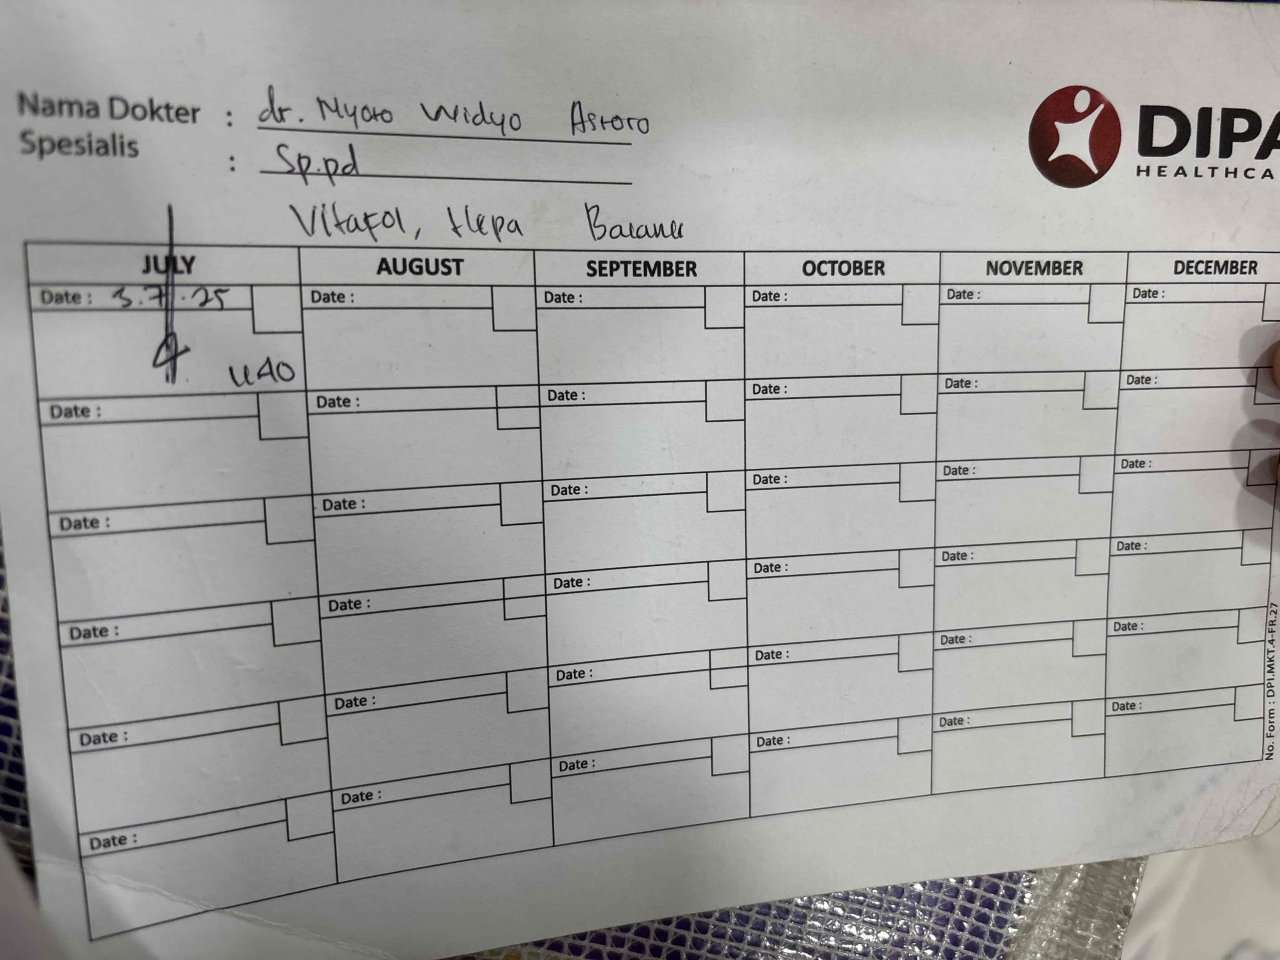 Nama Dokter : dr. Myoto Widyo Astoro
DIPA
HEALTHCA
Spesialis : Sp.pd
Vitafol, Hepa Balance
JULY AUGUST SEPTEMBER OCTOBER NOVEMBER DECEMBER
Date : 3.7.25 Date : Date : Date : Date : Date :
Date : Date : Date : Date : Date : Date :
Date : Date : Date : Date : Date : Date :
Date : Date : Date : Date : Date : Date :
Date : Date : Date : Date : Date : Date :
Date : Date : Date : Date : Date : Date :
No. Form : DPI.MKT.4-FR.27